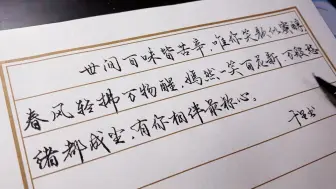 世间百味皆苦辛，唯你笑颜似蜜醇，
春风轻拂万物醒，嫣然一笑百花新，万般愁
绪都成尘，有你相伴最称心。